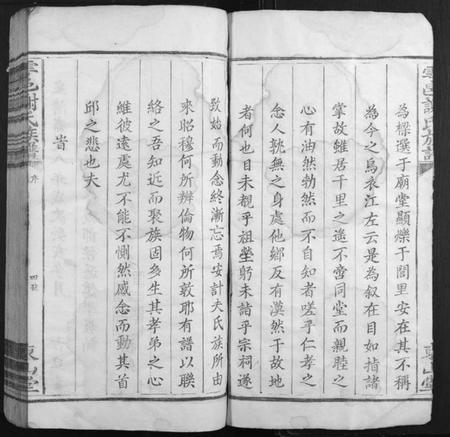 為樑選于廟堂顯爍于閭里安在其不稱
為今之烏衣江左云是為叙在目如指諸
掌故雖居千里之遙不啻同堂而親睦之
心有油然勃然而不自知者嗟乎仁孝之
念人孰無之身處他鄉反有漠然于故地
者何也目未覩乎祖塋躬未詣乎宗祠遂
致始而動念終漸忘焉安計夫氏族所由
來昭穆何所辨倫物何所敦耶有譜以聯
絡之吾知近而聚族固多生其孝弟之心
維彼遠處尤不能不惻然感念而動其首
邱之悲也夫
旹
謝氏族譜
序
東山堂